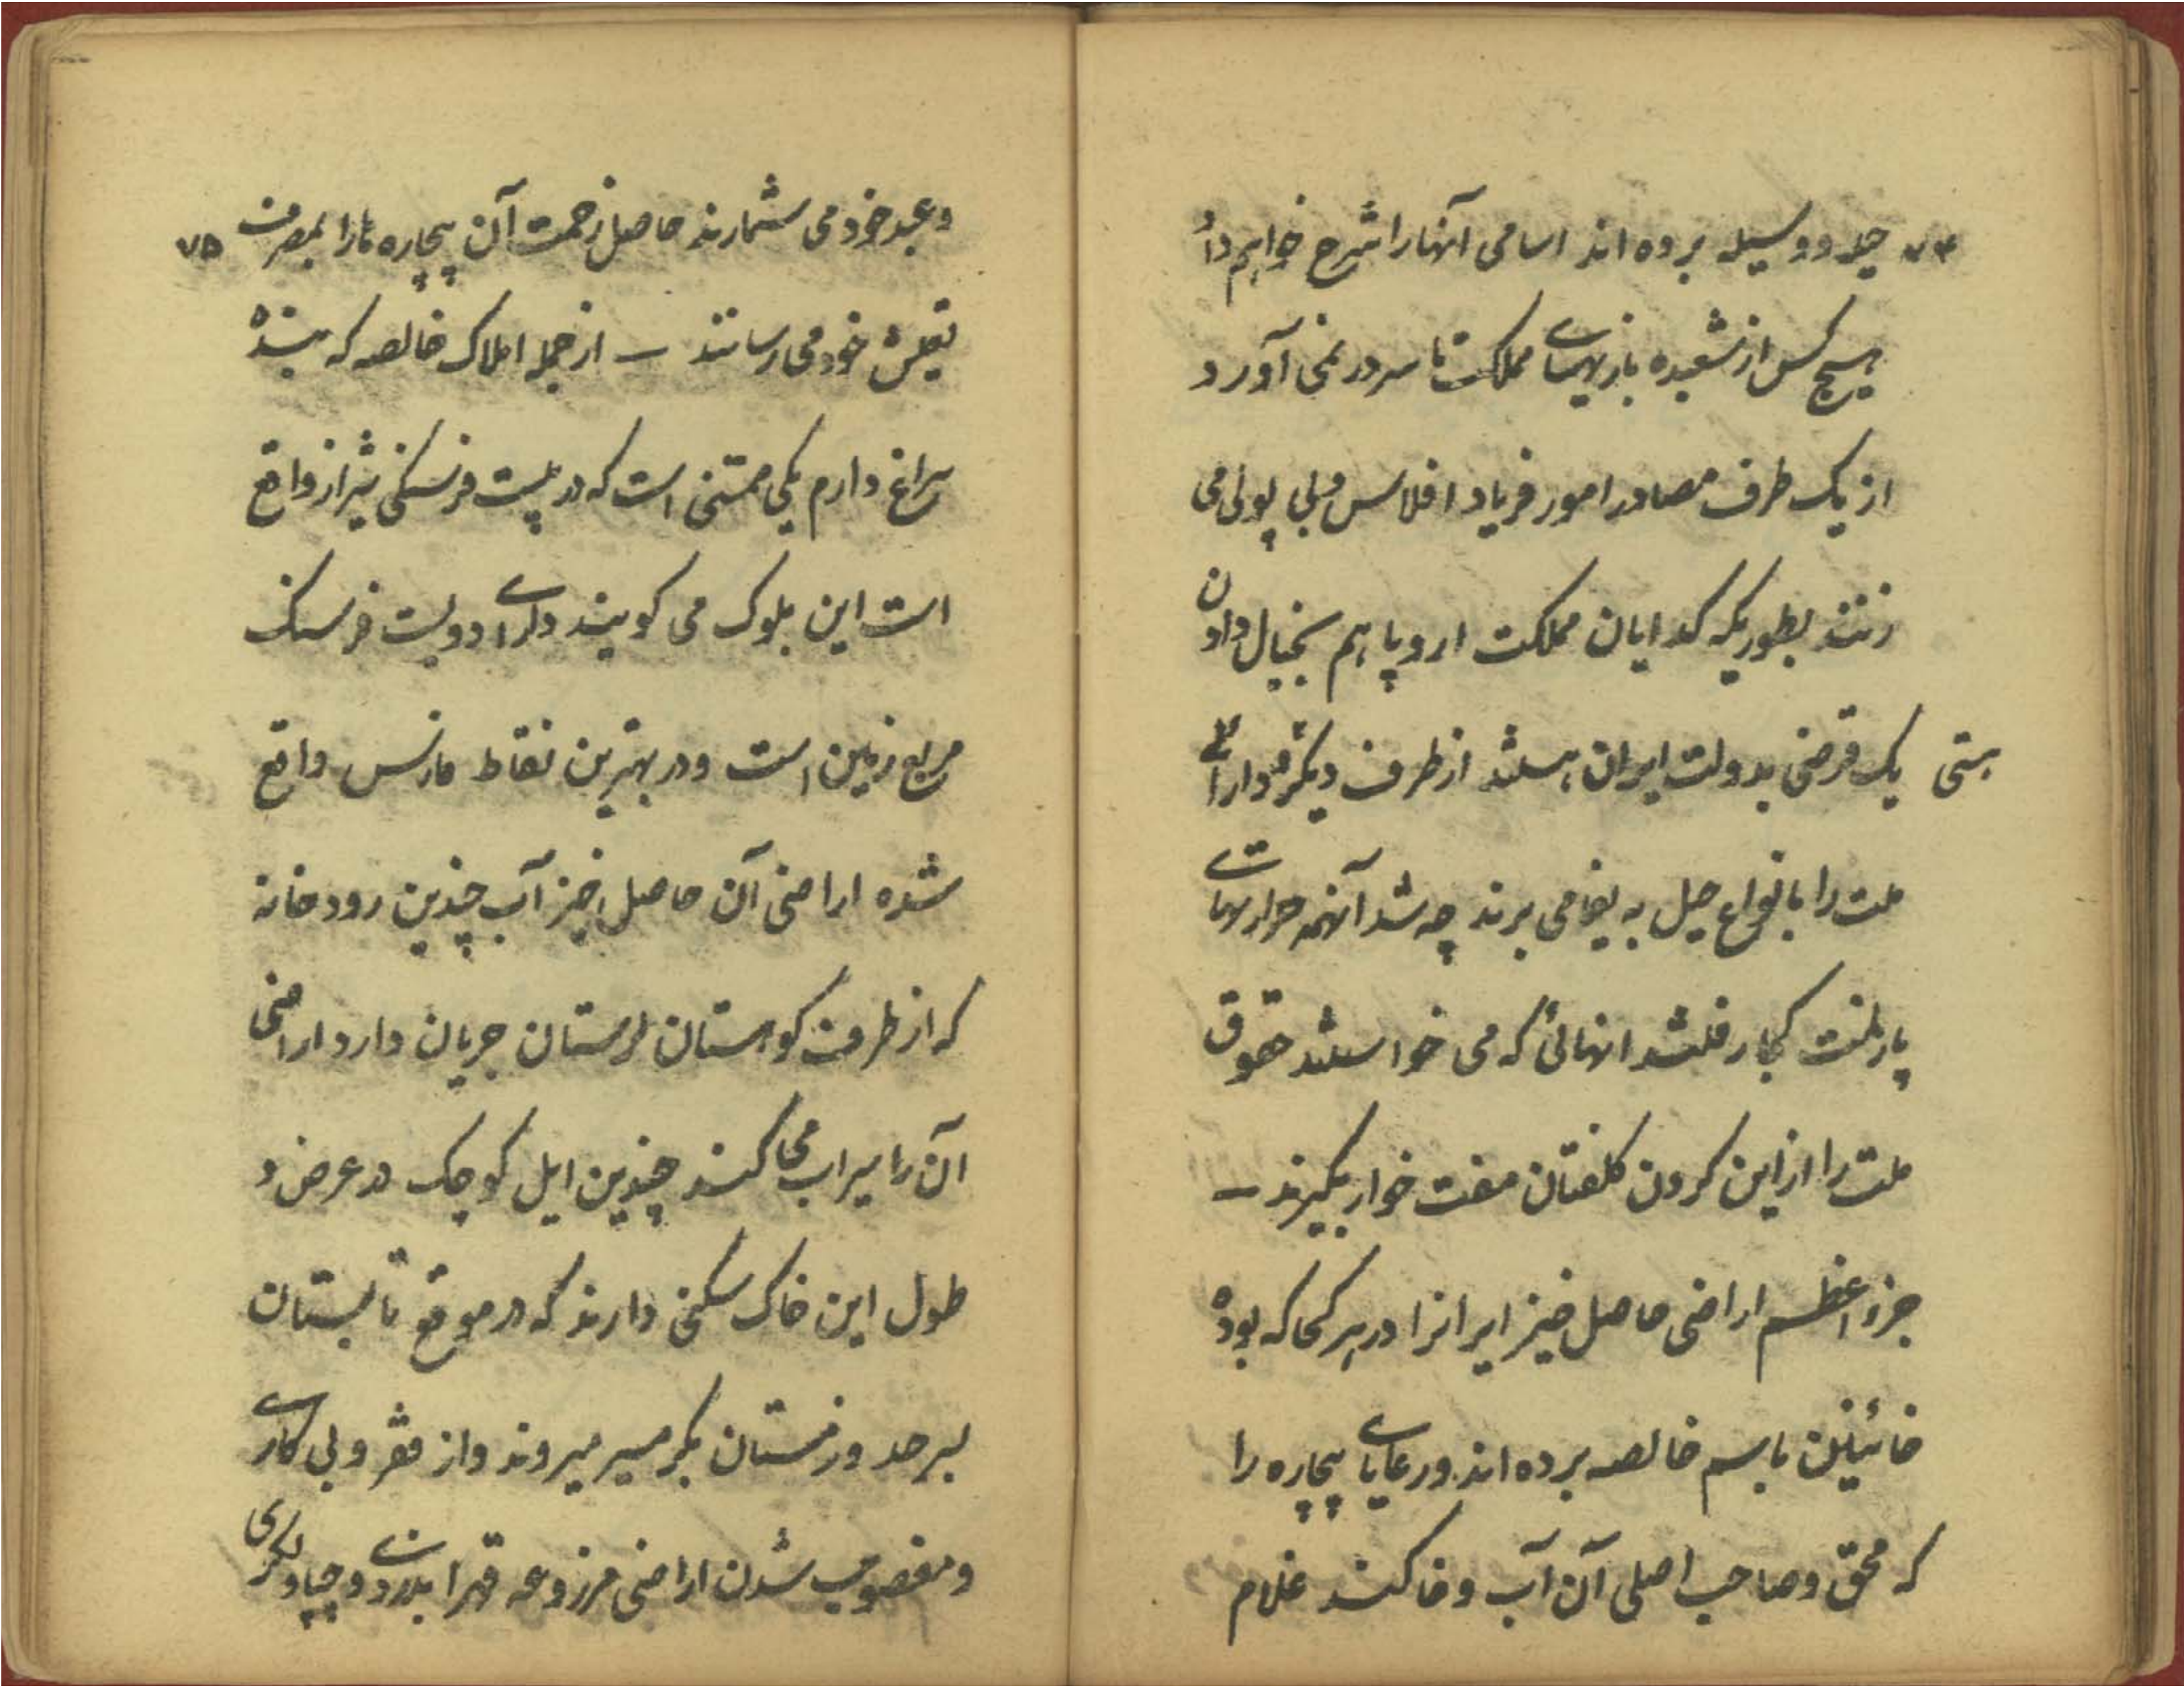 ۷۴ حیله و وسیله برده اند اسامی آنها را شرح خواهم داد
هیچ کس از شعبده بازیهای مملکت ما سر در نمی آورد
از یک طرف مصادر امور فریاد افلاس و بی پولی می
زنند بطوریکه گدایان مملکت اروپا هم بخیال دادن
یک قرضی بدولت ایران هستند از طرف دیگر دارائی هستی
ملت را بانواع حیل به یغما می برند چه شد آنهمه هواریهای
پارلمنت کجا رفتند انهائی که می خواستند حقوق
ملت را از این گردن کلفتان مفت خوار بگیرند –
جزو اعظم اراضی حاصل خیز ایرانرا در هر کجا که بوده
خائینین باسم خالصه برده اند ورعایای بیچاره را
که محق و صاحب اصلی آن آب و خاکند غلام
وعبد خود می شمارند حاصل زحمت آن بیچاره ها را بمصرف ۷۵
تعیش خود می رسانند – از جمله املاک خالصه که بنده
سراغ دارم یکی ممسنی است که در بیست فرسنگی شیراز واقع
است این بلوک می گویند دارای دویست فرسنگ
مربع زمین است و در بهترین نقاط فارس واقع
شده اراضی آن حاصل خیز آب چندین رودخانه
که از طرف کوهستان لرستان جریان دارد اراضی
آن را سیراب می کند چندین ایل کوچک در عرض و
طول این خاک سکنی دارند که در موقع تابستان
بسرحد و زمستان بگرمسیر میروند و از فقر و بی کاری
و مغصوب شدن اراضی مزروعه قهرا بدزدی و چپاولگری